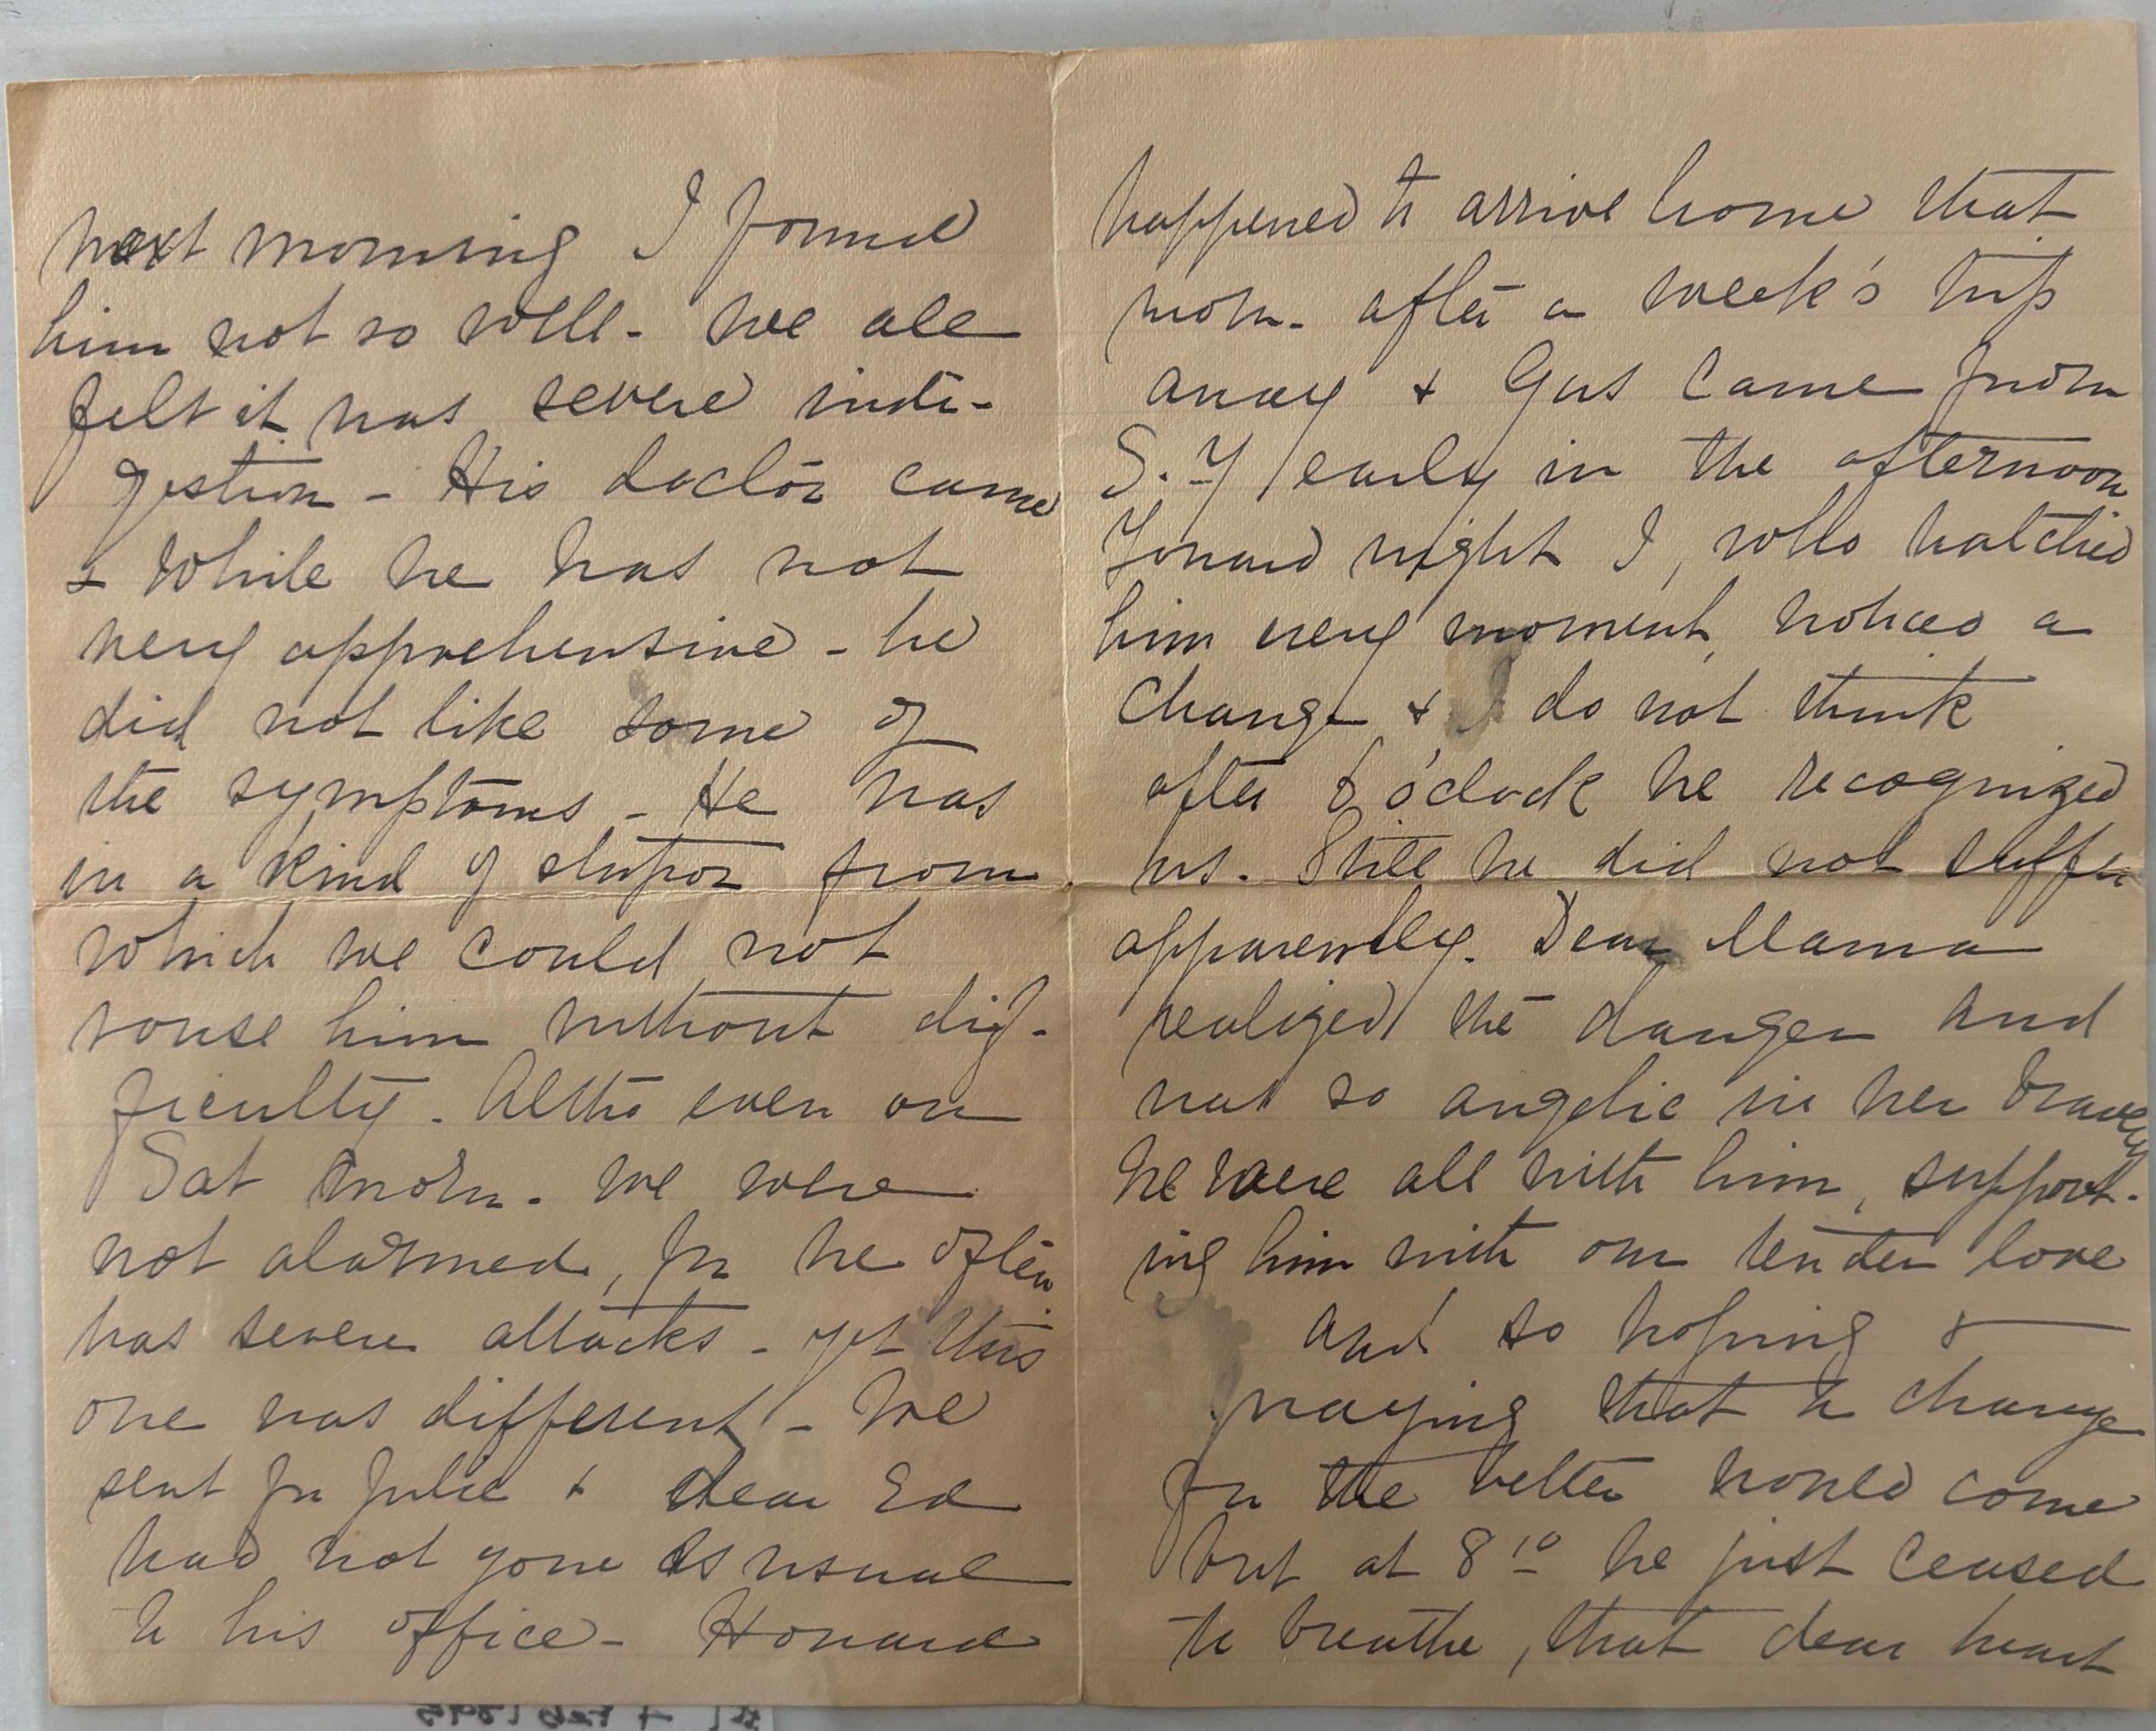 next morning I found
him not so well - We all
felt it was severe indi-
gestion - His doctor came
& while he was not
very apprehensive - he
did not like some of
the symptoms - He was
in a kind of stupor from
which we could not
rouse him without dif-
ficulty. Altho even on
Sat morn. we were
not alarmed, for he often
has severe attacks - yet this
one was different - We
sent for Julie & dear Ed
had not gone as usual
to his office - Howard
happened to arrive home that
morn. after a week's trip
away & Gus came from
S. Y early in the afternoon
Toward night I, who watched
him every moment, noticed a
change & I do not think
after 6 o'clock he recognized
us. Still he did not suffer
apparently. Dear Mama
realized the danger and
was so angelic in her bravery
We were all with him, support-
ing him with our tender love
and so hoping &
praying that a change
for the better would come
but at 8 10 he just ceased
to breathe, that dear heart